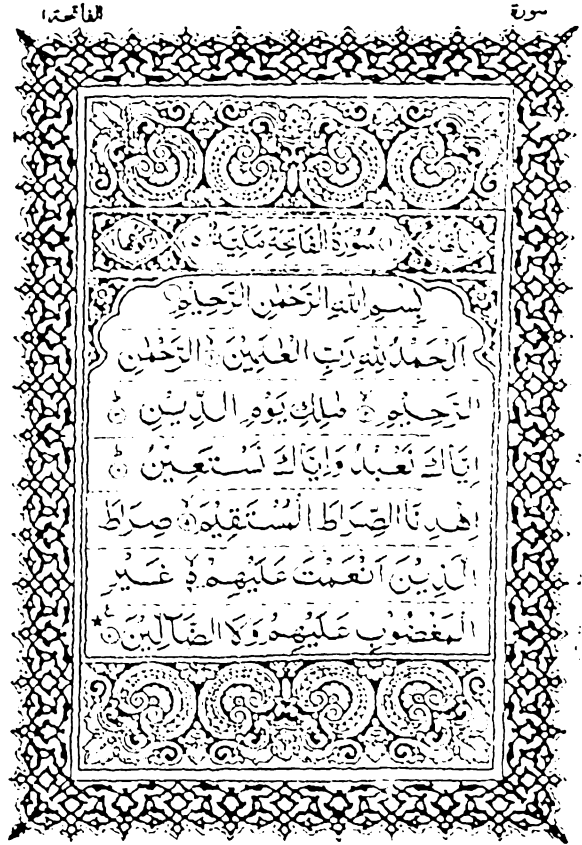 سورة الفاتحة ١
سُوْرَةُ الْفَاتِحَةِ مَكِّيَّةٌ
بِسْمِ اللّٰهِ الرَّحْمٰنِ الرَّحِيْمِ
اَلْحَمْدُ لِلّٰهِ رَبِّ الْعٰلَمِيْنَ الرَّحْمٰنِ
الرَّحِيْمِ مٰلِكِ يَوْمِ الدِّيْنِ
اِيَّاكَ نَعْبُدُ وَاِيَّاكَ نَسْتَعِيْنُ
اِهْدِنَا الصِّرَاطَ الْمُسْتَقِيْمَ صِرَاطَ
الَّذِيْنَ اَنْعَمْتَ عَلَيْهِمْ غَيْرِ
الْمَغْضُوْبِ عَلَيْهِمْ وَلَا الضَّآلِّيْنَ